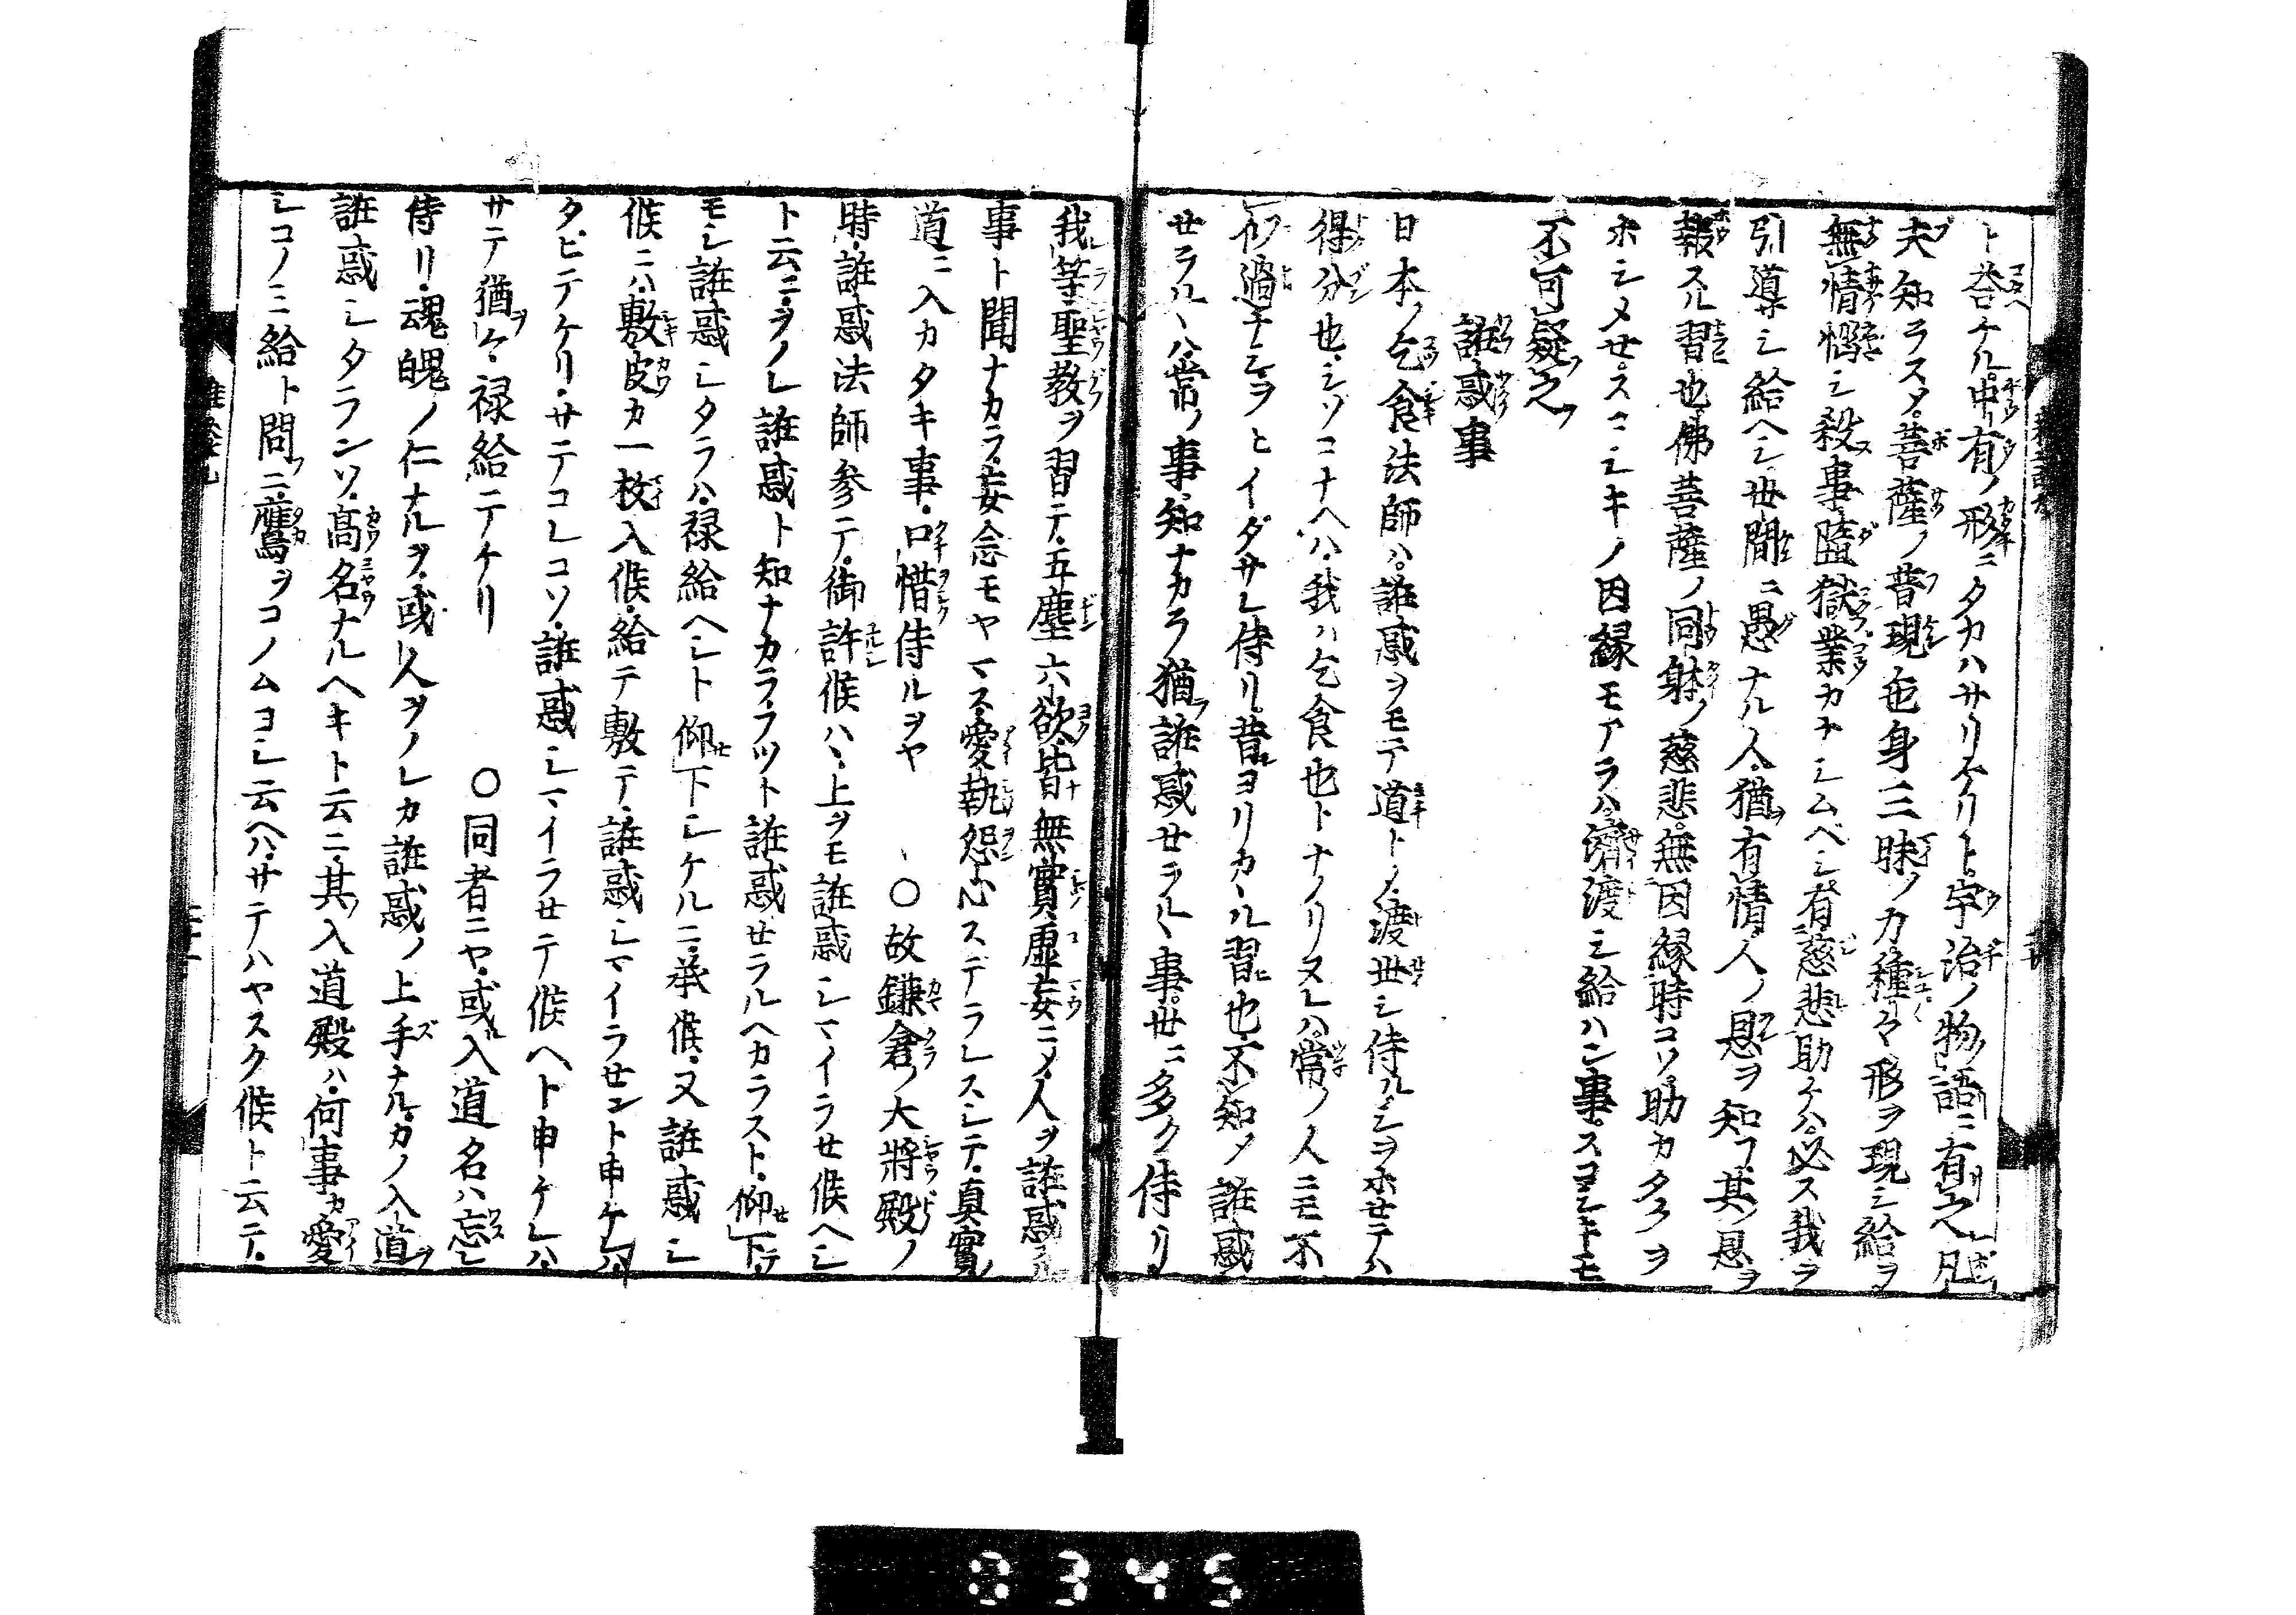 ト答ケル。中有ノ形ニタカハサリケリト。宇治ノ物語ニ有之凡
夫知ラスメ。菩薩ノ普現色身三昧ノ力。種々ノ形ヲ現シ給ヲ
無情慳シ殺事墮獄業カナシムベシ有慈悲助ケハ。必ス我ヲ
引導サシ給ヘシ。世間ニ愚ナル人。猶有情人ノ恩ヲ知フ。其ノ恩ヲ
報スル習也。佛菩薩ノ同躰ノ慈悲。無因縁時コソ。助カタクヲ
ホシメセ。スコシキノ因縁モアラハ。濟渡シ給ハン事。スコシキモ
不可疑之
誑惑事
日本ノ乞食法師ハ。誑惑ヲモテ道トノ。渡世シ侍ルシヲホセテハ
得分也。シソコナヘハ。我ハ乞食也トナノリヌレハ。常ノ人ニモ不
似過ナシヲヒイダサレ侍リ。昔ヨリカヽル習也。不知メ誑惑
せラルヽハ。常ノ事。知ナカラ猶誑惑せラルヽ事。世ニ多ク侍リ
我等聖教ヲ習テ。五塵六欲。皆無實虚妄ニメ。人ヲ誑惑スル
事ト聞ナカラ。妄念モヤマス。愛執怨心ステラレスシテ。真實ノ
道ニ入カタキ事。口惜侍ルヲヤ　〇故鎌倉ノ大將殿ノ
時。誑惑法師參テ。御許候ハヽ。上ヲモ誑惑シマイラせ候ヘシ
ト云ニ。ヲノレ誑惑ト知ナカラ。ラツト誑惑せラルヘカラスト。仰下テ。
モシ誑惑シタラハ。禄給ヘシト仰下シケルニ。承候。又誑惑シ
候ニハ。敷皮カ一枚入候。給テ敷テ。誑惑シマイラせント申ケレハ。
タビテケリ。サテコレコソ。誑惑シマイラせテ候ヘト申ケレハ。
サテ猶ヲケ。禄給テケリ　〇同者ニヤ。或入道名ハ忘レ
侍リ。魂魄ノ仁ナルヲ。或人ヲノレカ誑惑ノ上手ナル。カノ入道ヲ
誑惑シタランソ。高名ナルヘキト云ニ。其ノ入道殿ハ。何事カ愛
シコノミ給ト問ニ。鷹ヲコノムヨシ云ヘハ。サテハヤスク候ト云テ。
8345